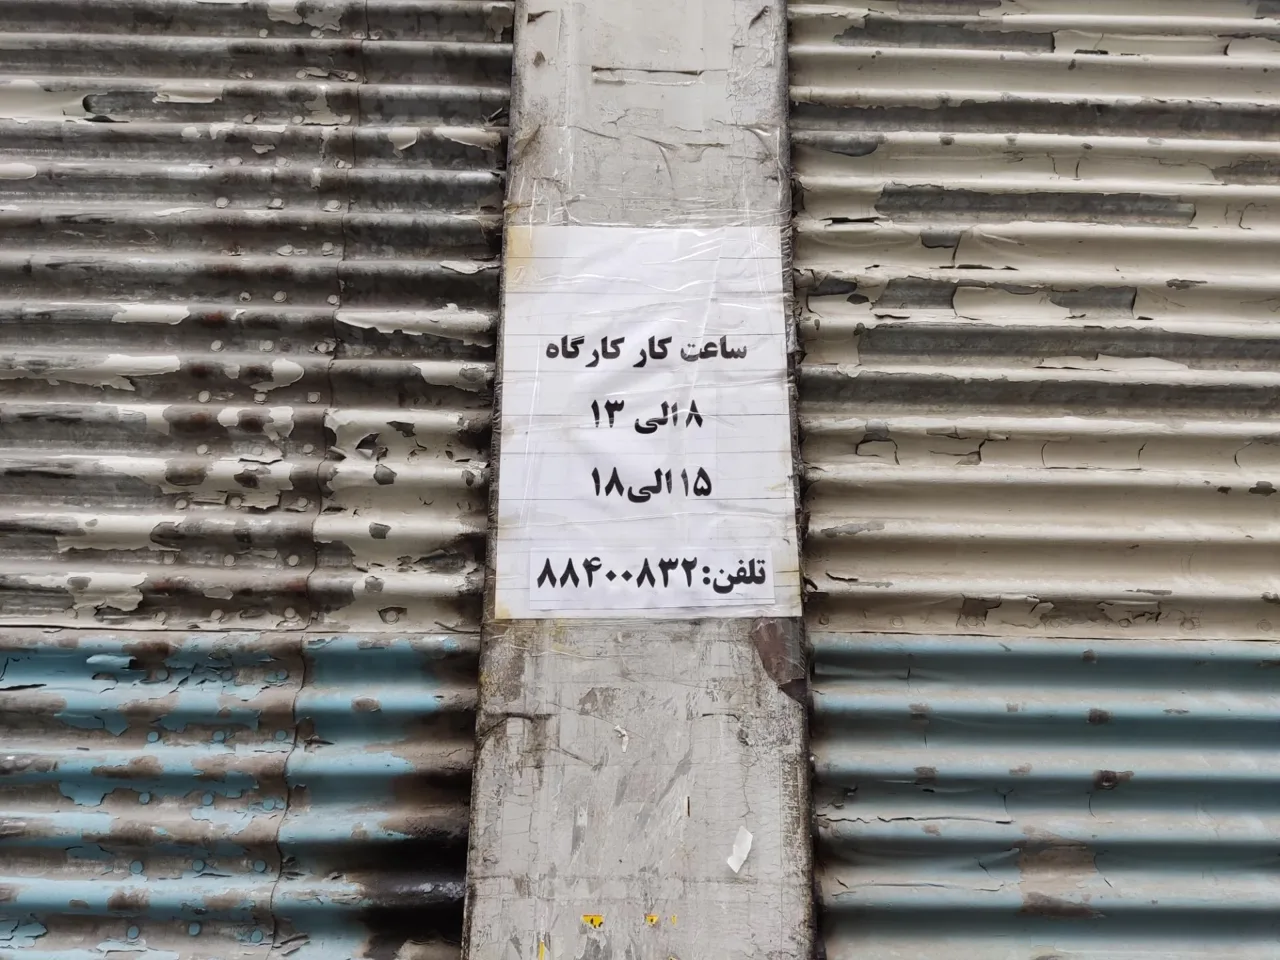 ساعت کار کارگاه
۸ الی ۱۳
۱۵ الی ۱۸
تلفن: ۸۸۴۰۰۸۳۲